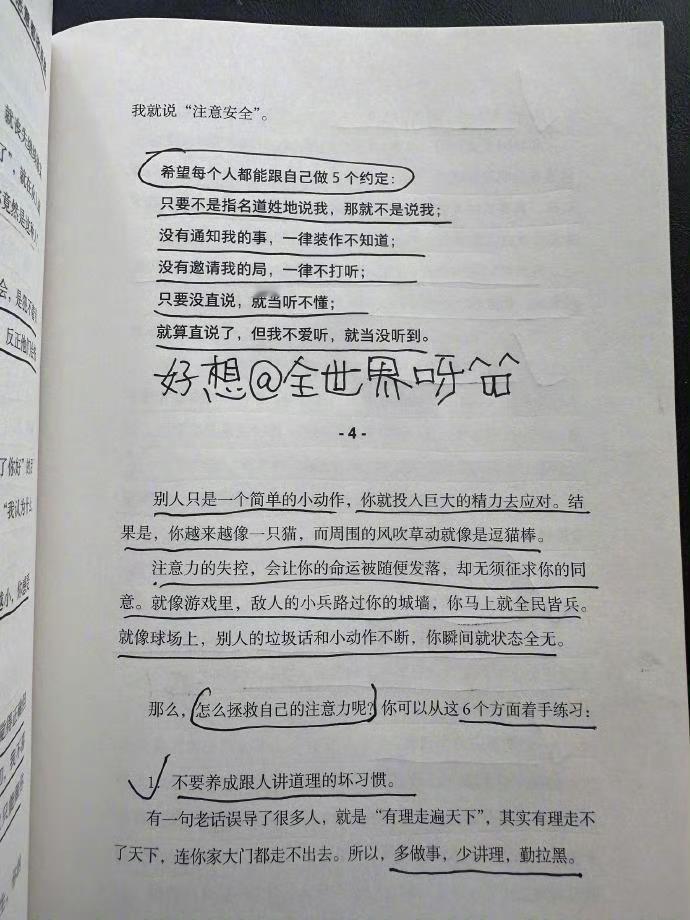 我就说“注意安全”。
希望每个人都能跟自己做5个约定：
只要不是指名道姓地说我，那就不是说我；
没有通知我的事，一律装作不知道；
没有邀请我的局，一律不打听；
只要没直说，就当听不懂；
就算直说了，但我不爱听，就当没听到。
好想@全世界呀
-4-
别人只是一个简单的小动作，你就投入巨大的精力去应对。结
果是，你越来越像一只猫，而周围的风吹草动就像是逗猫棒。
注意力的失控，会让你的命运被随便发落，却无须征求你的同
意。就像游戏里，敌人的小兵路过你的城墙，你马上就全民皆兵。
就像球场上，别人的垃圾话和小动作不断，你瞬间就状态全无。
那么，怎么拯救自己的注意力呢？你可以从这6个方面着手练习：
1. 不要养成跟人讲道理的坏习惯。
有一句老话误导了很多人，就是“有理走遍天下”，其实有理走不
了天下，连你家大门都走不出去。所以，多做事，少讲理，勤拉黑。